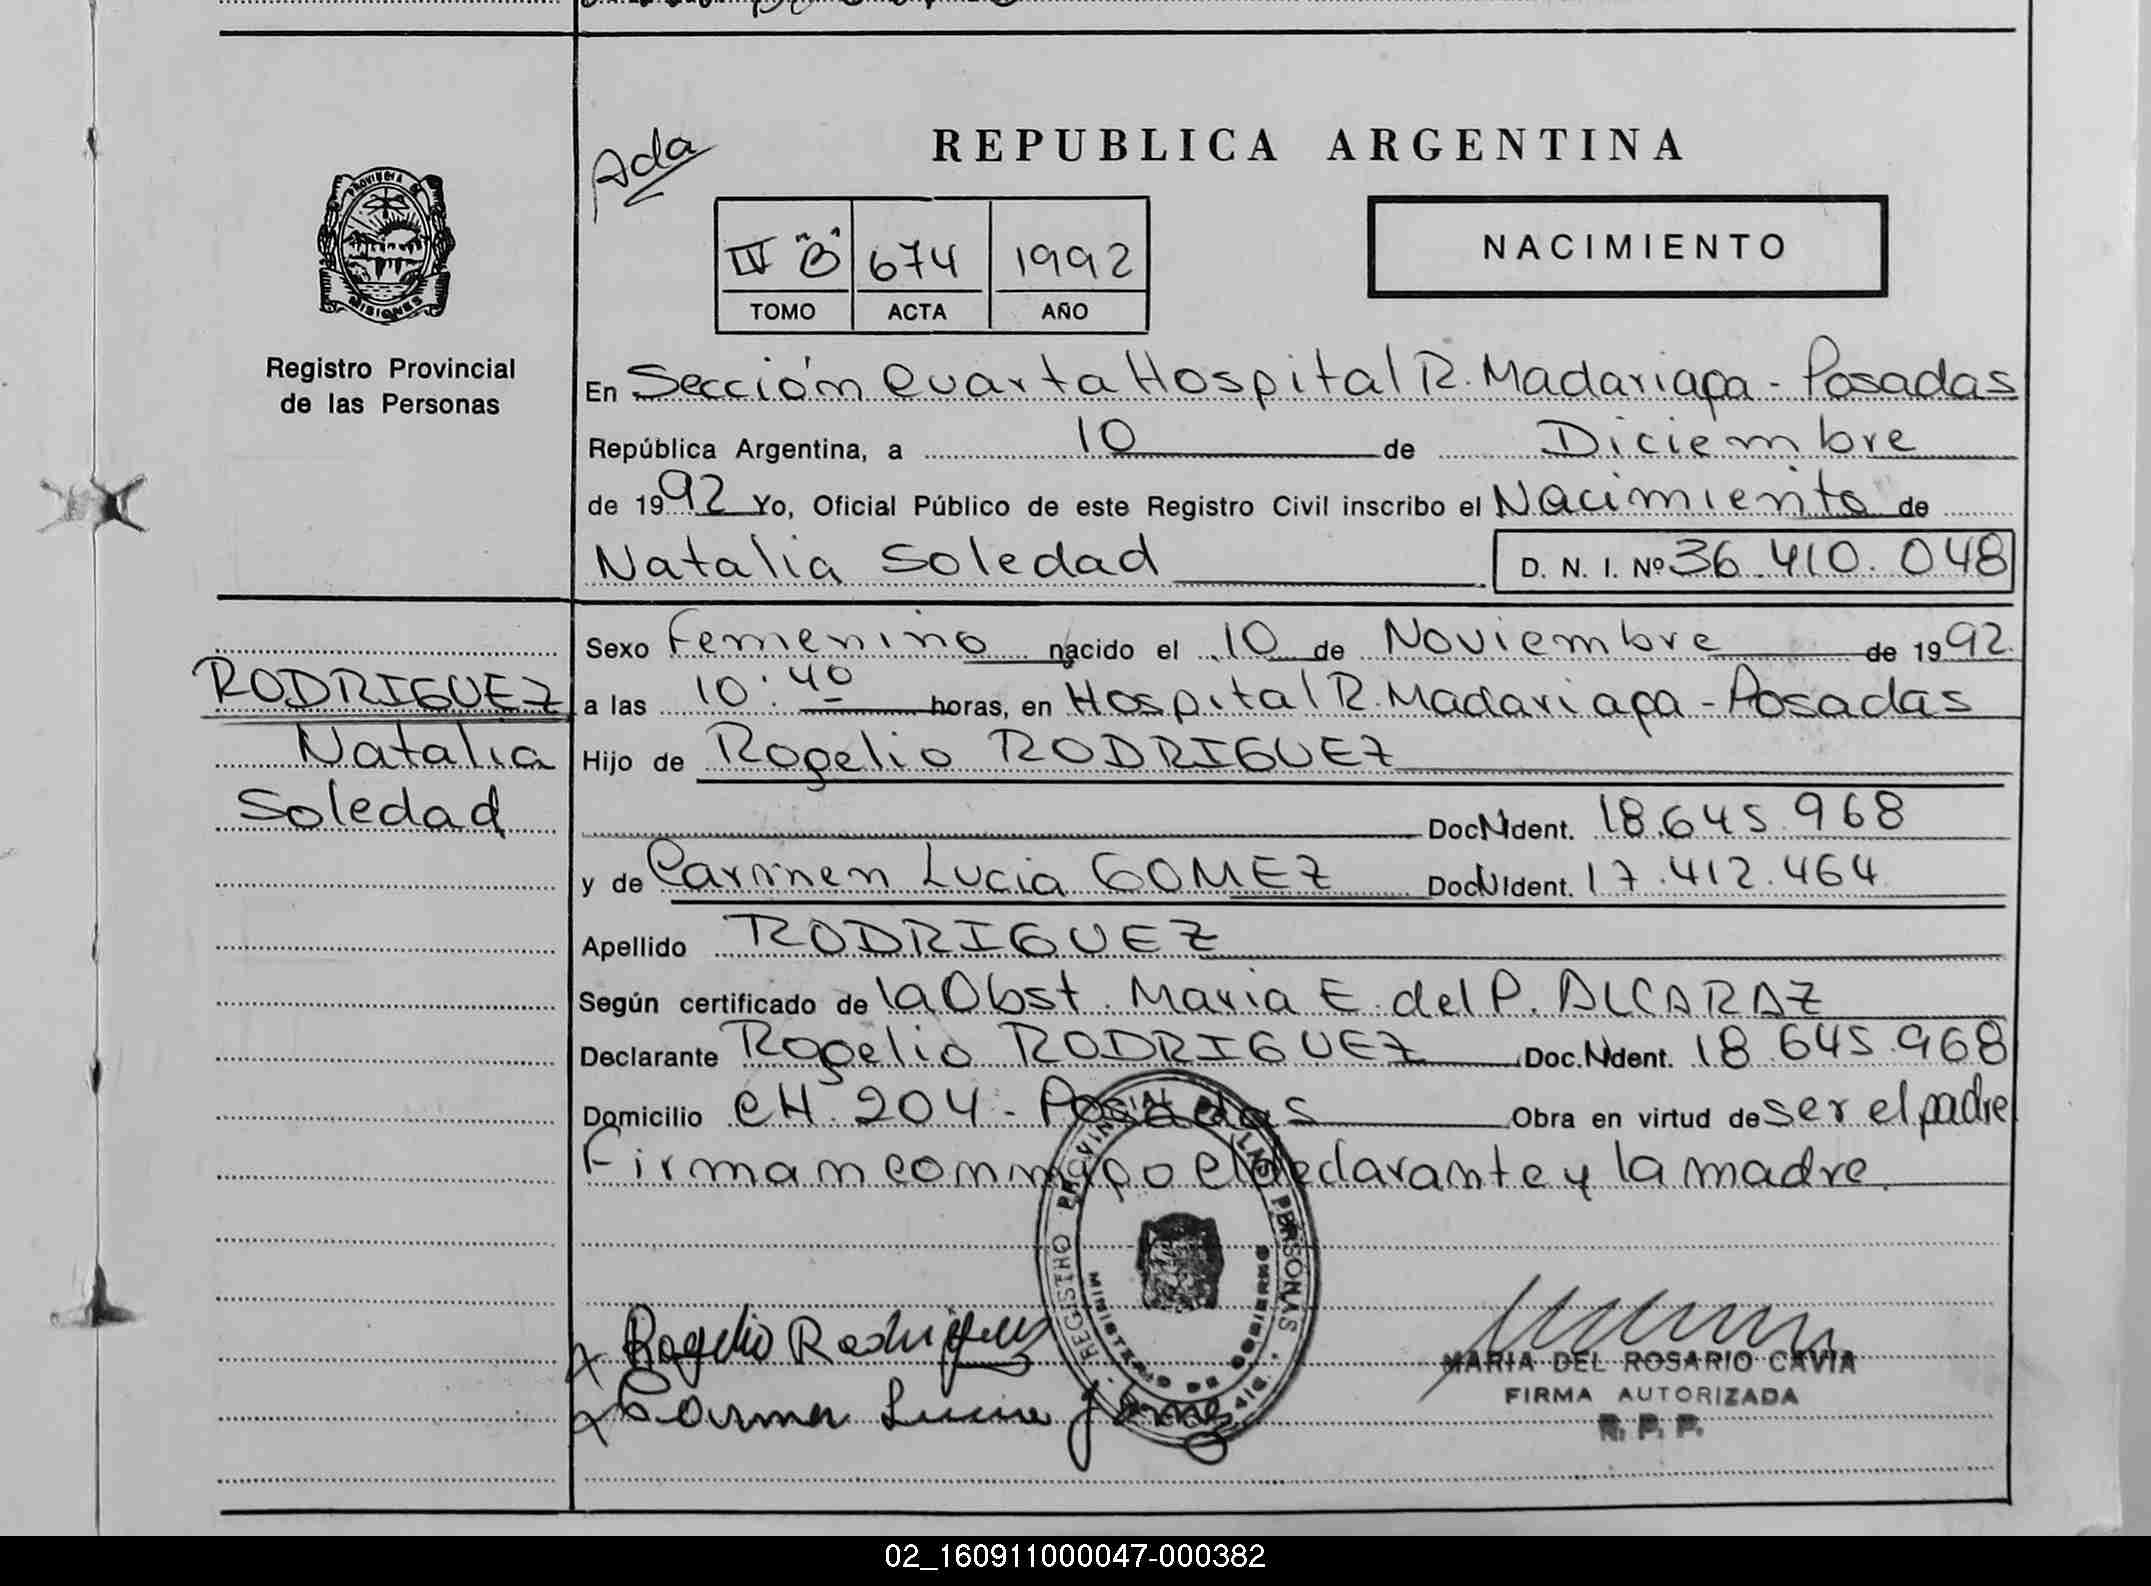 Ada
REPUBLICA ARGENTINA
PROVINCIA DE
MISIONES
IV "B" 674 1992
TOMO ACTA AÑO
NACIMIENTO
Registro Provincial
de las Personas
En Sección Cuarta Hospital R. Madariaga - Posadas
República Argentina, a 10 de Diciembre
de 1992 Yo, Oficial Público de este Registro Civil inscribo el Nacimiento de
Natalia Soledad D. N. I. Nº 36.410.048
RODRIGUEZ
Natalia
Soledad
Sexo Femenino nacido el 10 de Noviembre de 1992
a las 10:40 horas, en Hospital R. Madariaga - Posadas
Hijo de Rogelio RODRIGUEZ
Doc. N Ident. 18.645.968
y de Carmen Lucia GOMEZ Doc. N Ident. 17.412.464
Apellido RODRIGUEZ
Según certificado de la Obst. Maria E. del P. ALCARAZ
Declarante Rogelio RODRIGUEZ Doc. N Ident. 18.645.968
Domicilio CH. 204 - Posadas Obra en virtud de ser el padre
Firman conmigo el declarante y la madre.
REGISTRO PROVINCIAL DE LAS PERSONAS
MINISTERIO DE GOBIERNO
Rogelio Rodriguez
Carmen Lucia Gomez
MARIA DEL ROSARIO CAVIA
FIRMA AUTORIZADA
R. P. P.
02_160911000047-000382